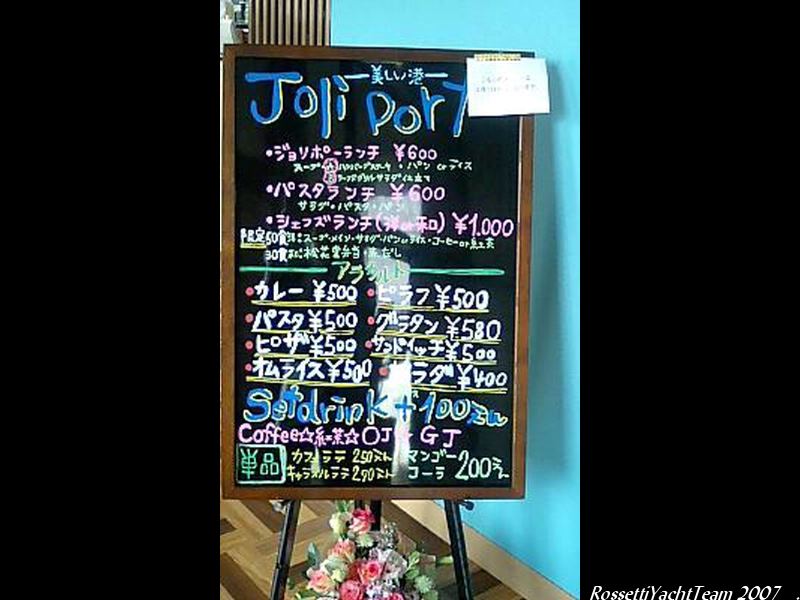 美しい港
Joli Port
・ジョリポーランチ ¥600
スープ ・パン orライス
・パスタランチ ¥600
サラダ・パスタ・パン
・シェフズランチ(洋or和) ¥1,000
限定50食 スープ・メイン・サラダ・パンorライス・コーヒーor紅茶
30食 松花堂弁当・赤だし
アラカルト
・カレー ¥500 ・ピラフ ¥500
・パスタ ¥500 ・グラタン ¥580
・ピザ ¥500 ・サンドイッチ ¥500
・オムライス ¥500 ・サラダ ¥400
Setdrink+100えん
Coffee☆紅茶☆OJ☆GJ
単品 カフェラテ 250えん マンゴー
キャラメルラテ 290えん コーラ 200えん
RossettiYachtTeam 2007